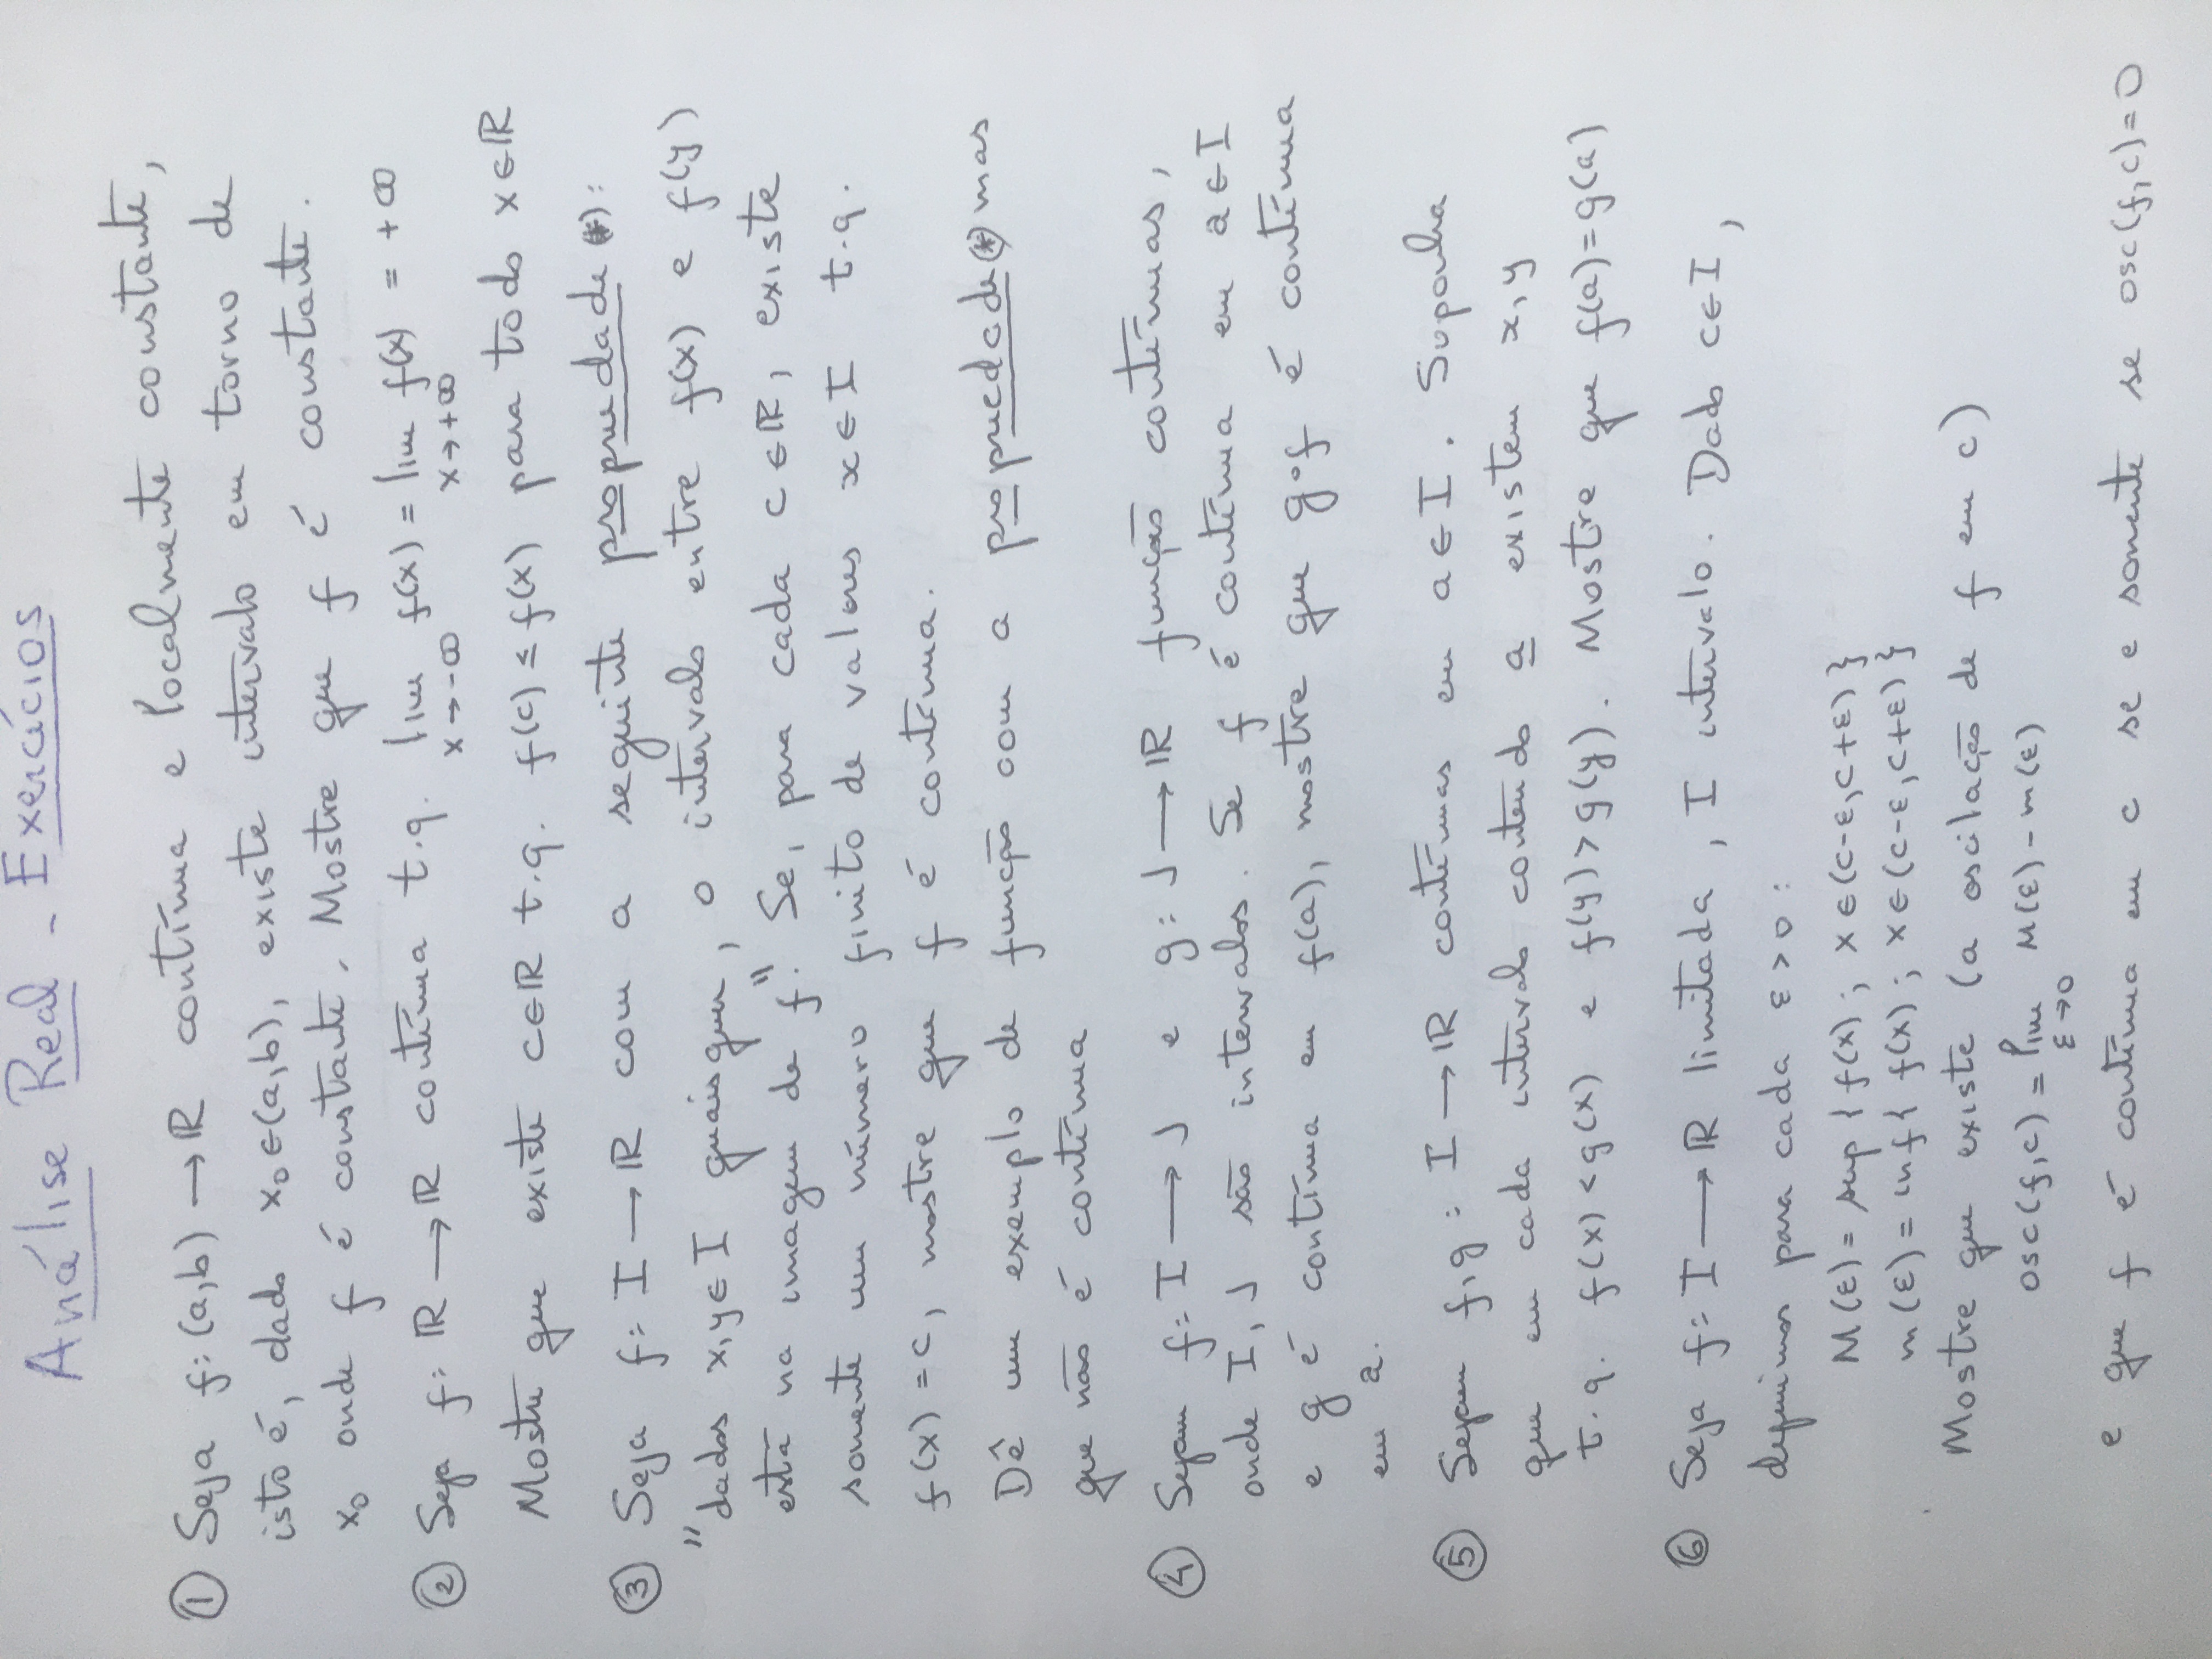 Análise Real - Exercícios
① Seja f: (a,b) → ℝ contínua e localmente constante,
isto é, dado x₀ ∈ (a,b), existe intervalo em torno de
x₀ onde f é constante. Mostre que f é constante.
② Seja f: ℝ → ℝ contínua t.q. lim f(x) = lim f(x) = +∞
x→-∞ x→+∞
Mostre que existe c∈ℝ t.q. f(c) ≤ f(x) para todo x∈ℝ
③ Seja f: I → ℝ com a seguinte propriedade (*):
"dados x,y ∈ I quaisquer, o intervalo entre f(x) e f(y)
está na imagem de f." Se, para cada c∈ℝ, existe
somente um número finito de valores x∈I t.q.
f(x) = c, mostre que f é contínua.
Dê um exemplo de função com a propriedade (*) mas
que não é contínua
④ Sejam f: I → J e g: J → ℝ função contínuas,
onde I, J são intervalos. Se f é contínua em a∈I
e g é contínua em f(a), mostre que g∘f é contínua
em a.
⑤ Sejam f,g: I → ℝ contínuas em a∈I. Suponha
que em cada intervalo contendo a existem x,y
t.q. f(x) < g(x) e f(y) > g(y). Mostre que f(a) = g(a)
⑥ Seja f: I → ℝ limitada, I intervalo. Dado c∈I,
definimos para cada ε>0:
M(ε) = sup { f(x); x∈(c-ε, c+ε) }
m(ε) = inf { f(x); x∈(c-ε, c+ε) }
Mostre que existe (a oscilação de f em c)
osc(f,c) = lim M(ε) - m(ε)
ε→0
e que f é contínua em c se e somente se osc(f,c) = 0